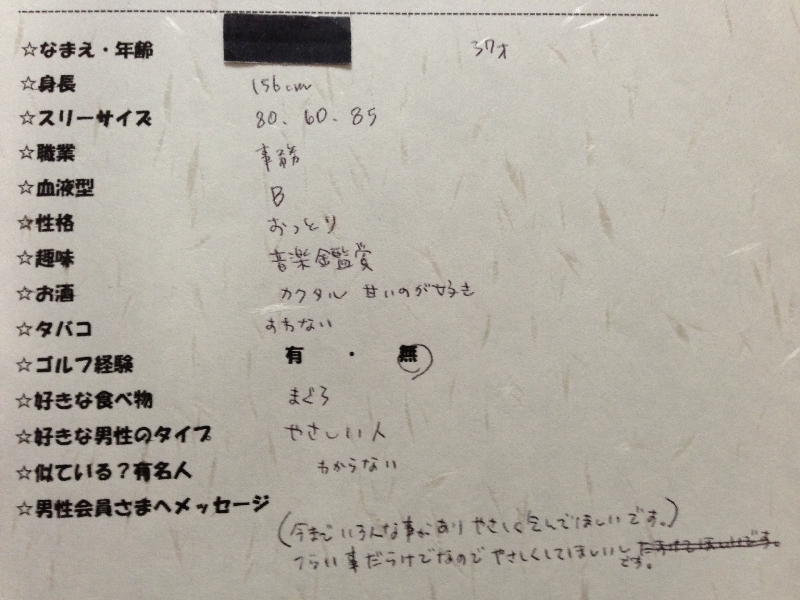 ☆なまえ・年齢 37才
☆身長 156cm
☆スリーサイズ 80、60、85
☆職業 事務
☆血液型 B
☆性格 おっとり
☆趣味 音楽鑑賞
☆お酒 カクタル 甘いのが好き
☆タバコ すわない
☆ゴルフ経験 有・無
☆好きな食べ物 まぐろ
☆好きな男性のタイプ やさしい人
☆似ている?有名人 わからない
☆男性会員さまへメッセージ
(今までいろんな事がありやさしく してほしいです。)
つらい事だらけでなのでやさしくしてほしいし
です。